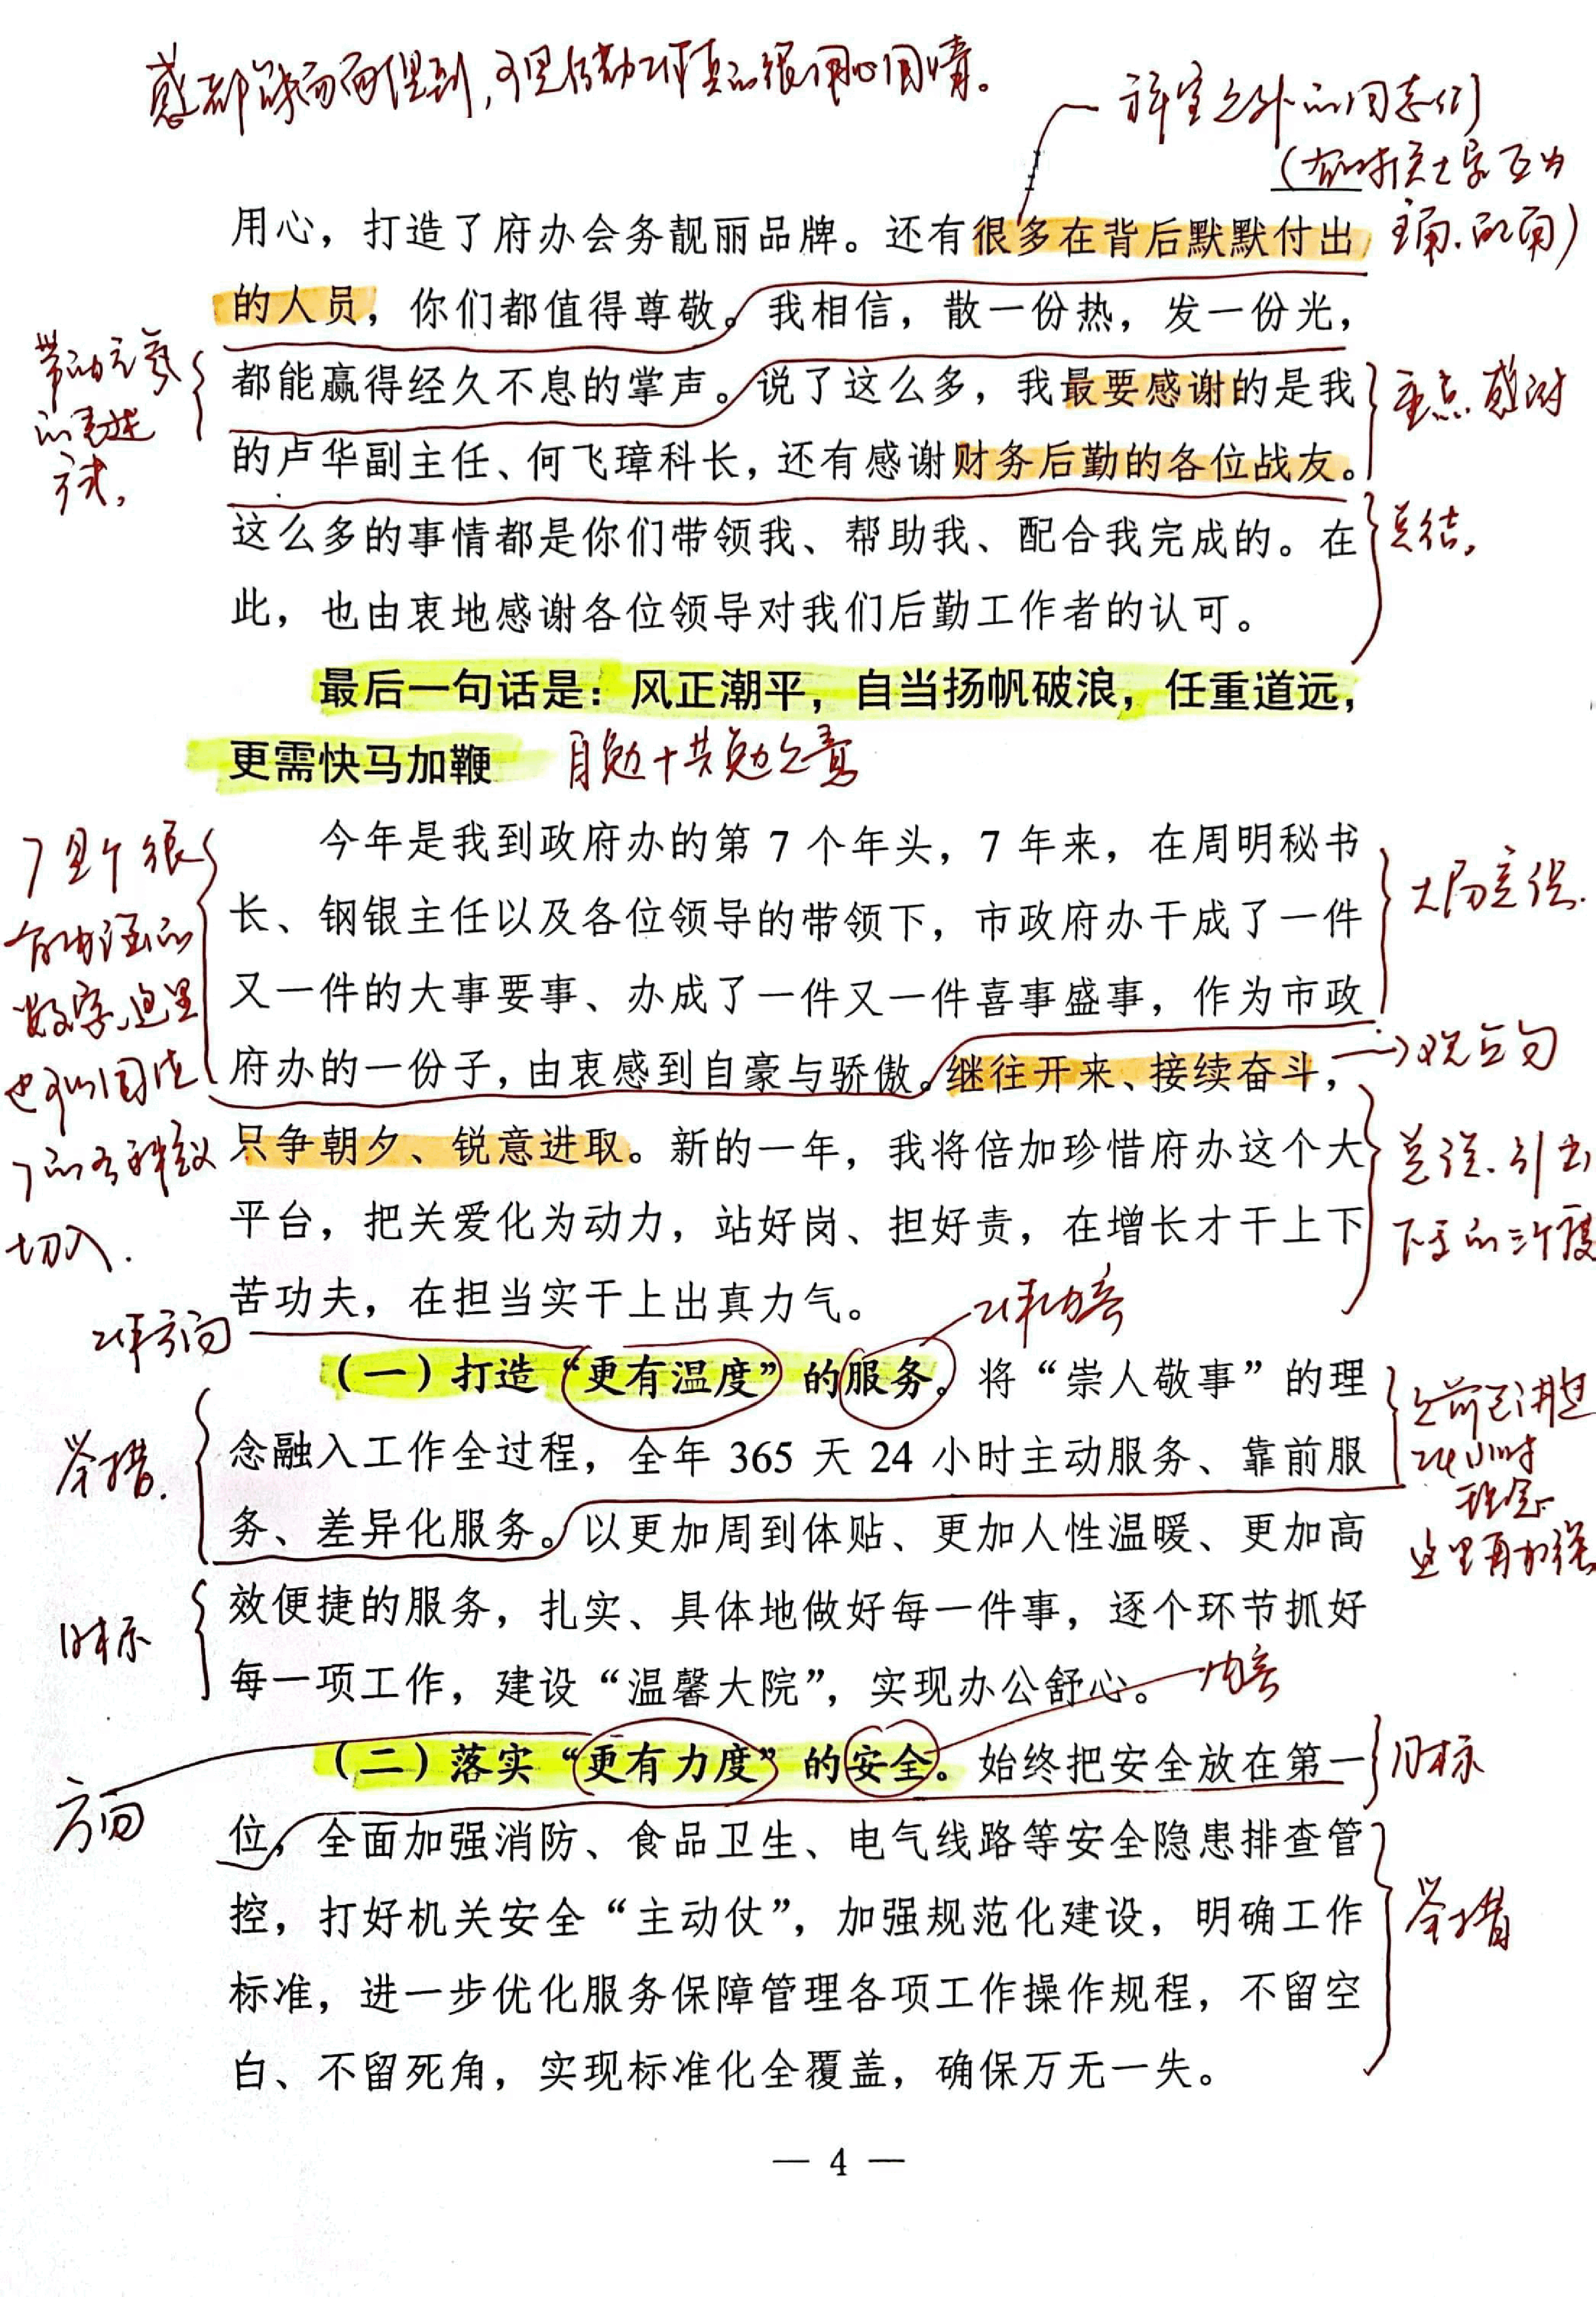 用心，打造了府办会务靓丽品牌。还有很多在背后默默付出
的人员，你们都值得尊敬。我相信，散一份热，发一份光，
都能赢得经久不息的掌声。说了这么多，我最要感谢的是我
重点感谢
的卢华副主任、何飞璋科长，还有感谢财务后勤的各位战友。
这么多的事情都是你们带领我、帮助我、配合我完成的。在
总结，
此，也由衷地感谢各位领导对我们后勤工作者的认可。
最后一句话是：风正潮平，自当扬帆破浪，任重道远，
更需快马加鞭
自勉+共勉之意
今年是我到政府办的第 7 个年头，7 年来，在周明秘书
长、钢银主任以及各位领导的带领下，市政府办干成了一件
又一件的大事要事、办成了一件又一件喜事盛事，作为市政
府办的一份子，由衷感到自豪与骄傲。继往开来、接续奋斗，
→观点句
只争朝夕、锐意进取。新的一年，我将倍加珍惜府办这个大
平台，把关爱化为动力，站好岗、担好责，在增长才干上下
苦功夫，在担当实干上出真力气。
工作方向
工作内容
（一）打造“更有温度”的服务。将“崇人敬事”的理
念融入工作全过程，全年 365 天 24 小时主动服务、靠前服
举措.
之前已讲过
24小时
理念
这里再加强
务、差异化服务。以更加周到体贴、更加人性温暖、更加高
效便捷的服务，扎实、具体地做好每一件事，逐个环节抓好
目标
每一项工作，建设“温馨大院”，实现办公舒心。
内容
（二）落实“更有力度”的安全。始终把安全放在第一
目标
方向
位，全面加强消防、食品卫生、电气线路等安全隐患排查管
控，打好机关安全“主动仗”，加强规范化建设，明确工作
举措
标准，进一步优化服务保障管理各项工作操作规程，不留空
白、不留死角，实现标准化全覆盖，确保万无一失。
— 4 —